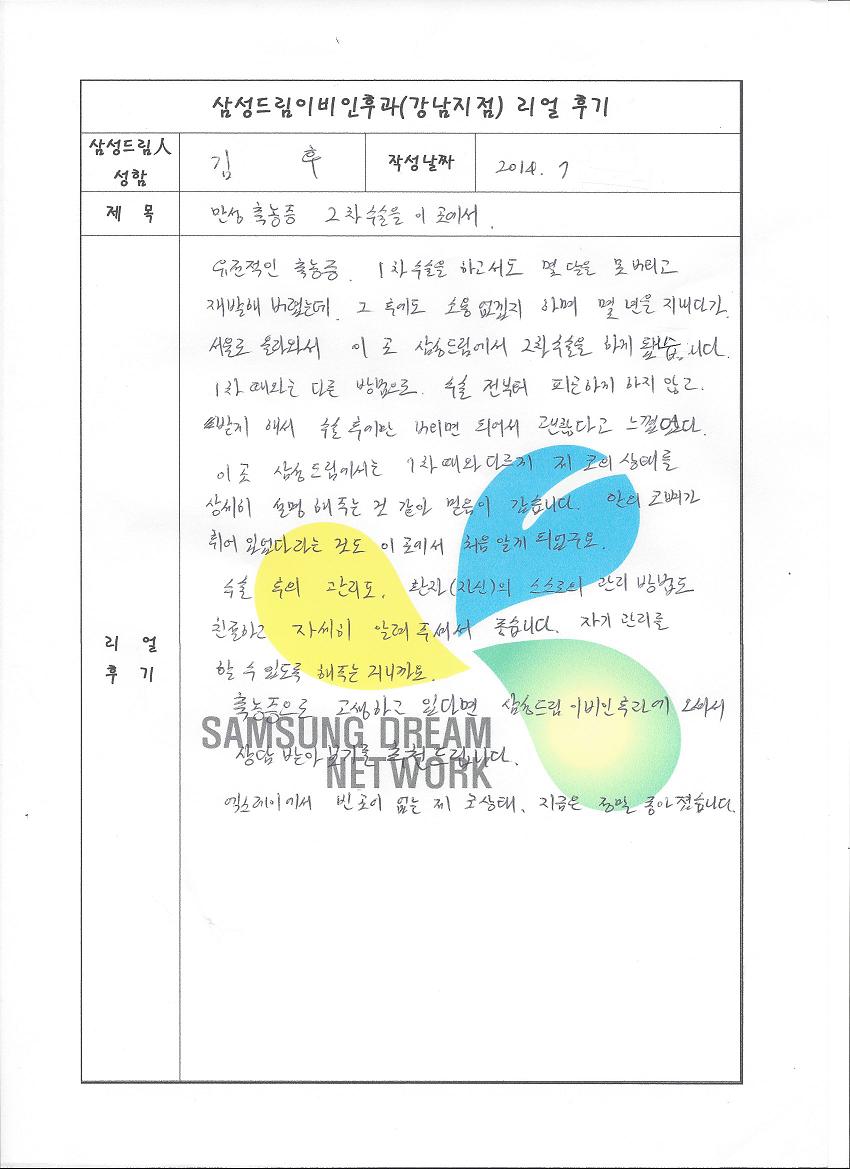 삼성드림이비인후과(강남지점) 리얼 후기
삼성드림人 성함
김 후
작성날짜
2014. 7
제 목
만성 축농증 2차 수술을 이 곳에서.
리 얼
후 기
유전적인 축농증. 1차 수술을 하고서도 몇 달을 못 버티고
재발해 버렸는데. 그 후에도 소용 없겠지 하며 몇 년을 지내다가.
서울로 올라와서 이 곳 삼성드림에서 2차 수술을 하게 됐습니다.
1차 때와는 다른 방법으로. 수술 전부터 하지 않고.
수술 후에만 버티면 되어서 괜찮다고 느꼈었다.
이 곳 삼성드림에서는 1차 때와 다르게 제 코의 상태를
상세히 설명 해주는 것 같아 믿음이 갔습니다. 안의 코뼈가
휘어 있었다라는 것도 이 곳에서 처음 알게 되었구요.
수술 후의 관리도. 환자(자신)의 스스로의 관리 방법도
친절하고 자세히 알려 주셔서 좋습니다. 자기 관리를
할 수 있도록 해주는 거니까요.
축농증으로 고생하고 있다면 삼성드림 이비인후과에 오셔서
상담 받아 보기를 추천드립니다.
엑스레이에서 빈 곳이 없는 제 코상태. 지금은 정말 좋아졌습니다.
SAMSUNG DREAM
NETWORK